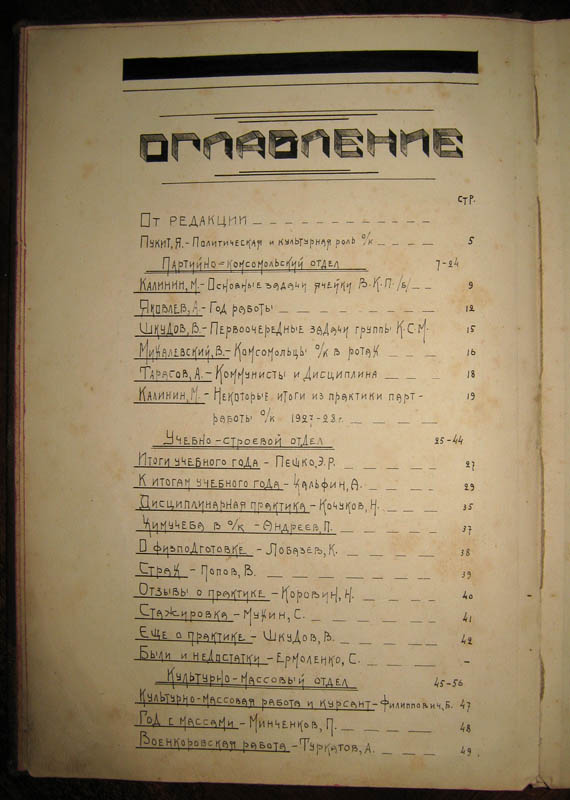 ОГЛАВЛЕНИЕ
СТР.
ОТ РЕДАКЦИИ
ПУКИТ, Я. - ПОЛИТИЧЕСКАЯ И КУЛЬТУРНАЯ РОЛЬ О/К 5
ПАРТИЙНО=КОМСОМОЛЬСКИЙ ОТДЕЛ 7-24
КАЛИНИН, М. - ОСНОВНЫЕ ЗАДАЧИ ЯЧЕЙКИ В.К.П./б/ 9
ЯКОВЛЕВ, А. - ГОД РАБОТЫ 12
ШКУДОВ, В. - ПЕРВООЧЕРЕДНЫЕ ЗАДАЧИ ГРУППЫ К.С.М. 15
МИХАЛЕВСКИЙ, В. - КОМСОМОЛЬЦЫ О/К В РОТАХ 16
ТАРАСОВ, А. - КОММУНИСТЫ И ДИСЦИПЛИНА 18
КАЛИНИН, М. - НЕКОТОРЫЕ ИТОГИ ИЗ ПРАКТИКИ ПАРТ-
РАБОТЫ О/К 1927-28 г. 19
УЧЕБНО-СТРОЕВОЙ ОТДЕЛ 25-44
ИТОГИ УЧЕБНОГО ГОДА - ПЕШКО, Э.Р. 27
К ИТОГАМ УЧЕБНОГО ГОДА - КАЛЬФИН, А. 29
ДИСЦИПЛИНАРНАЯ ПРАКТИКА - КОЧУКОВ, Н. 35
ХИМУЧЕБА В О/К - АНДРЕЕВ, П. 37
О ФИЗПОДГОТОВКЕ - ЛОБАЗЕВ, К. 38
СТРАХ - ПОПОВ, В. 39
ОТЗЫВЫ О ПРАКТИКЕ - КОРОВИН, Н. 40
СТАЖИРОВКА - МУХИН, С. 41
ЕЩЕ О ПРАКТИКЕ - ШКУДОВ, В. 42
БЫЛИ И НЕДОСТАТКИ - ЕРМОЛЕНКО, С. -
КУЛЬТУРНО-МАССОВЫЙ ОТДЕЛ 45-56
КУЛЬТУРНО-МАССОВАЯ РАБОТА И КУРСАНТ - ФИЛИППОВИЧ, Б. 47
ГОД С МАССАМИ - МИНЧЕНКОВ, П. 48
ВОЕНКОРОВСКАЯ РАБОТА - ТУРКАТОВ, А. 49